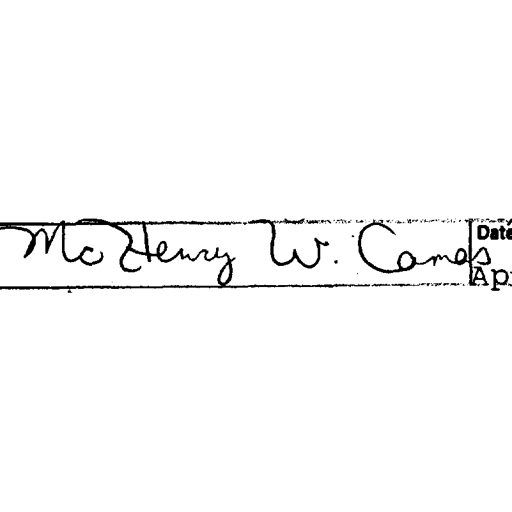 McHenry W. Camas
Date
Apr